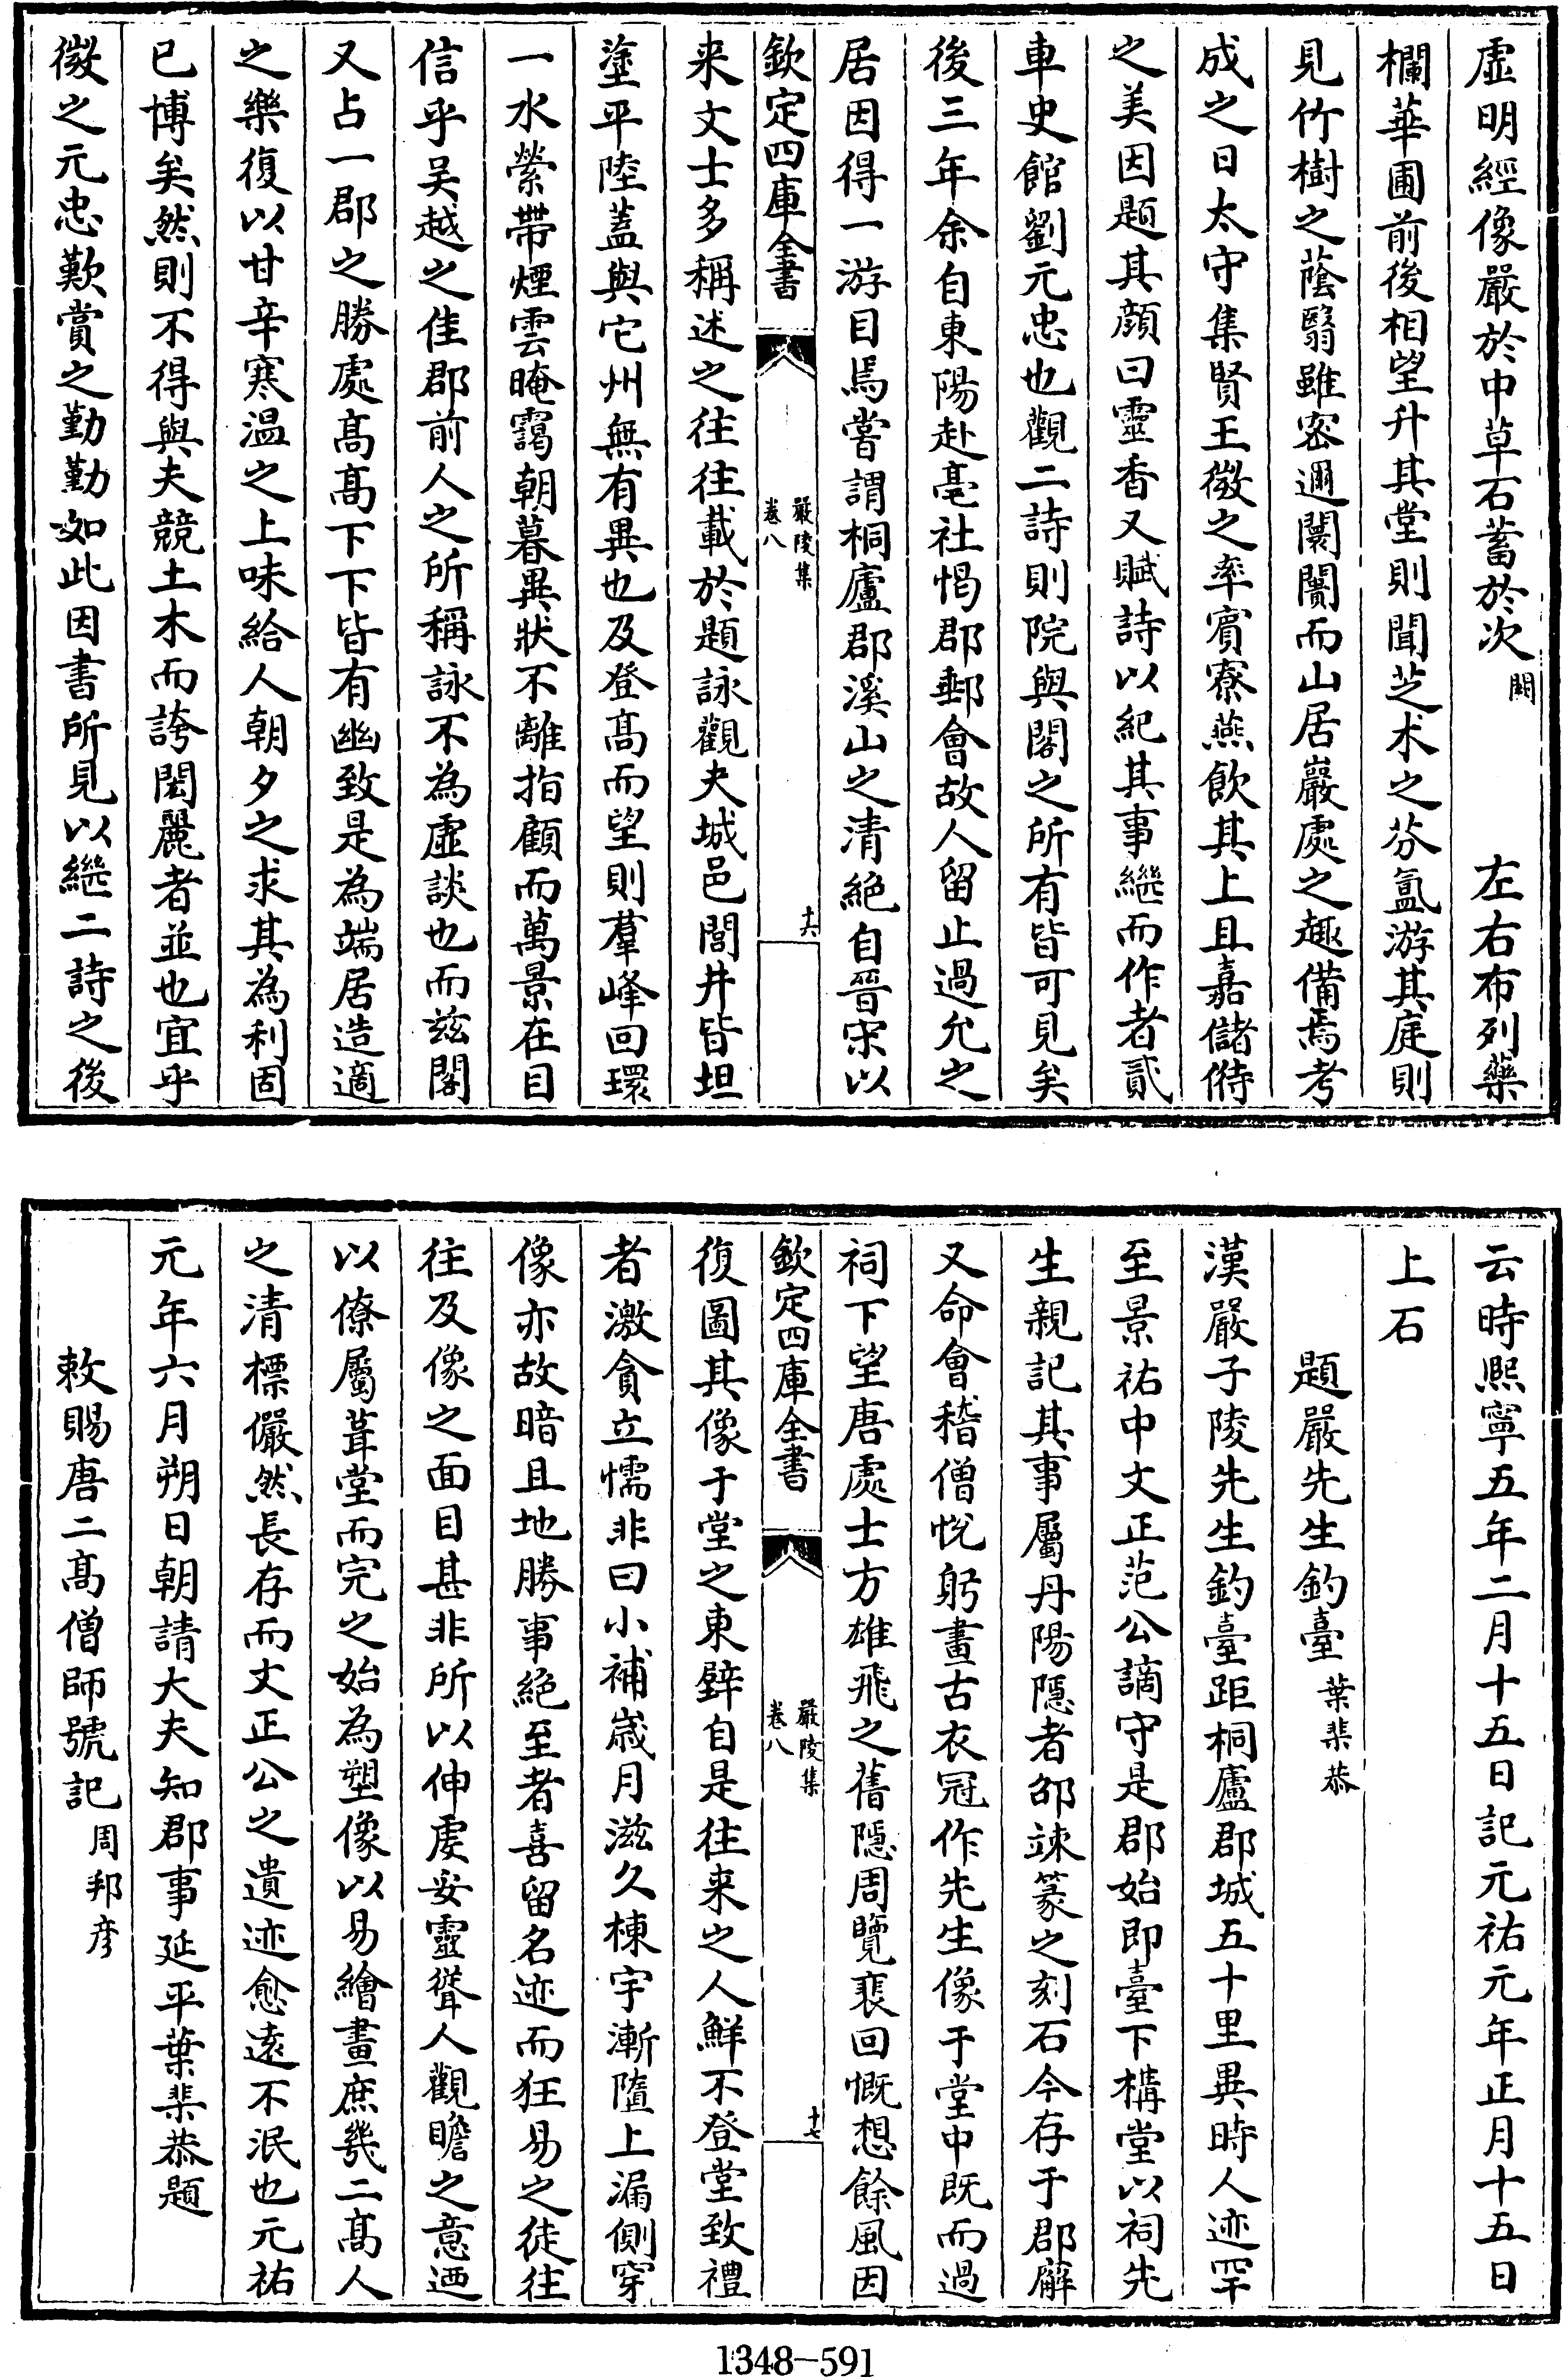 虛明經像嚴於中草石蓄於次闕 左右布列藥
欄華圃前後相望升其堂則聞芝术之芬氳游其庭則
見竹樹之蔭翳雖密邇闤闠而山居巖處之趣備焉考
成之日太守集賢王徵之率賓寮燕飲其上且嘉儲偫
之美因題其顔曰靈香又賦詩以紀其事繼而作者貳
車史館劉元忠也觀二詩則院與閣之所有皆可見矣
後三年余自東陽赴亳社愒郡郵會故人留止過允之
居因得一游目焉嘗謂桐廬郡溪山之清絕自晉宋以
欽定四庫全書
嚴陵集
卷八
十六
来文士多稱述之往往載於題詠觀夫城邑閭井皆坦
塗平陸蓋與它州無有異也及登髙而望則羣峰回環
一水縈帶煙雲晻靄朝暮異狀不離指顧而萬景在目
信乎吳越之佳郡前人之所稱詠不為虛談也而兹閣
又占一郡之勝處髙髙下下皆有幽致是為端居造適
之樂復以甘辛寒温之上味給人朝夕之求其為利固
已博矣然則不得與夫競土木而誇閎麗者並也宜乎
徵之元忠歎賞之勤勤如此因書所見以繼二詩之後
云時熙寧五年二月十五日記元祐元年正月十五日
上石
題嚴先生釣臺葉棐恭
漢嚴子陵先生釣臺距桐廬郡城五十里異時人迹罕
至景祐中文正范公謫守是郡始即臺下構堂以祠先
生親記其事屬丹陽隱者邵竦篆之刻石今存于郡廨
又命會稽僧悅躬畫古衣冠作先生像于堂中既而過
祠下望唐處士方雄飛之舊隱周覽裴回慨想餘風因
欽定四庫全書
嚴陵集
卷八
十七
復圖其像于堂之東辟自是往来之人鮮不登堂致禮
者激貪立懦非曰小補歳月滋久棟宇漸隳上漏側穿
像亦故暗且地勝事絕至者喜留名迹而狂易之徒往
往及像之面目甚非所以伸虔妥靈聳人觀瞻之意迺
以僚屬葺堂而完之始為塑像以易繪畫庶幾二髙人
之清標儼然長存而文正公之遺迹愈逺不泯也元祐
元年六月朔日朝請大夫知郡事延平葉棐恭題
敕賜唐二髙僧師號記周邦彦
1348-591